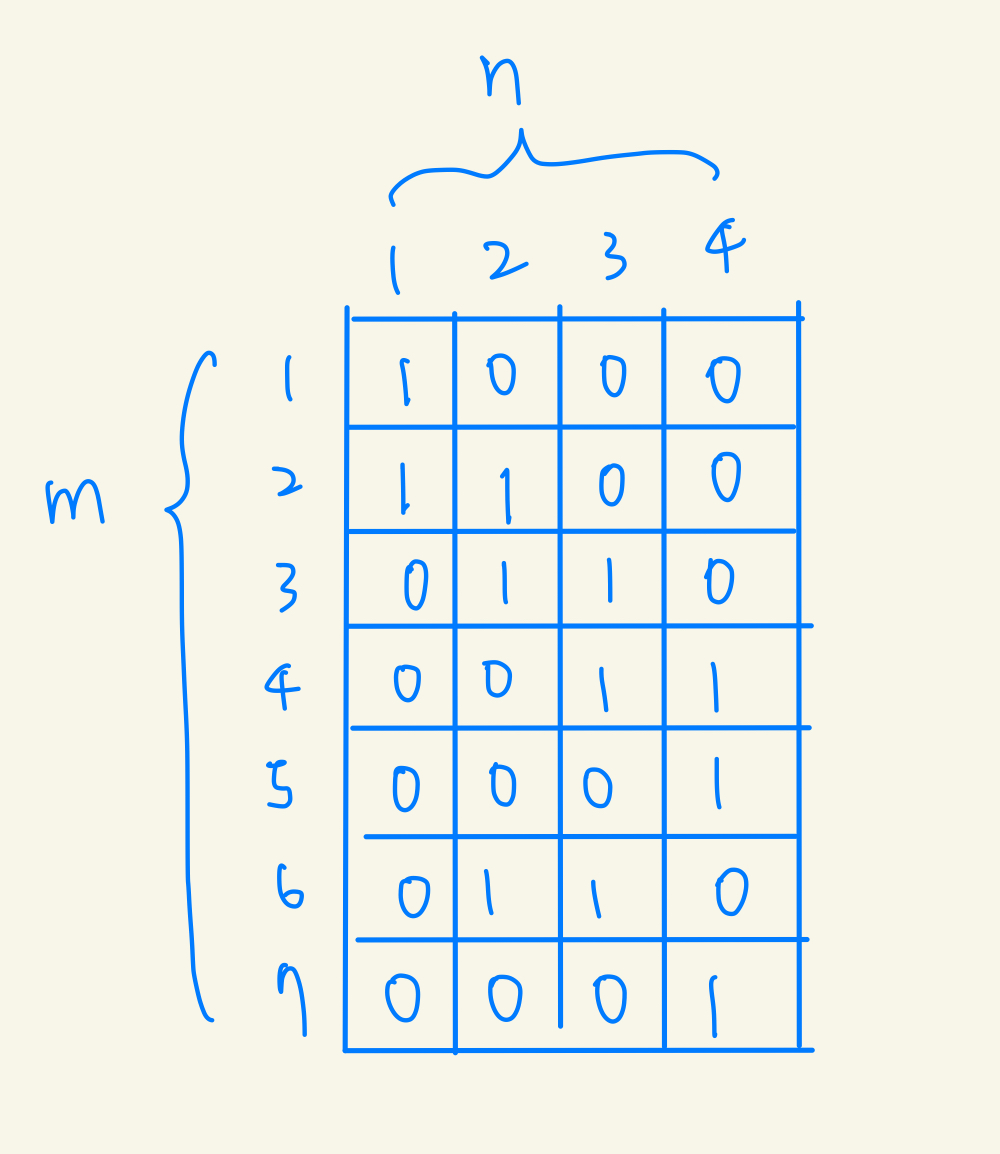 n
1 2 3 4
1 1 0 0 0
2 1 1 0 0
3 0 1 1 0
m
4 0 0 1 1
5 0 0 0 1
6 0 1 1 0
7 0 0 0 1